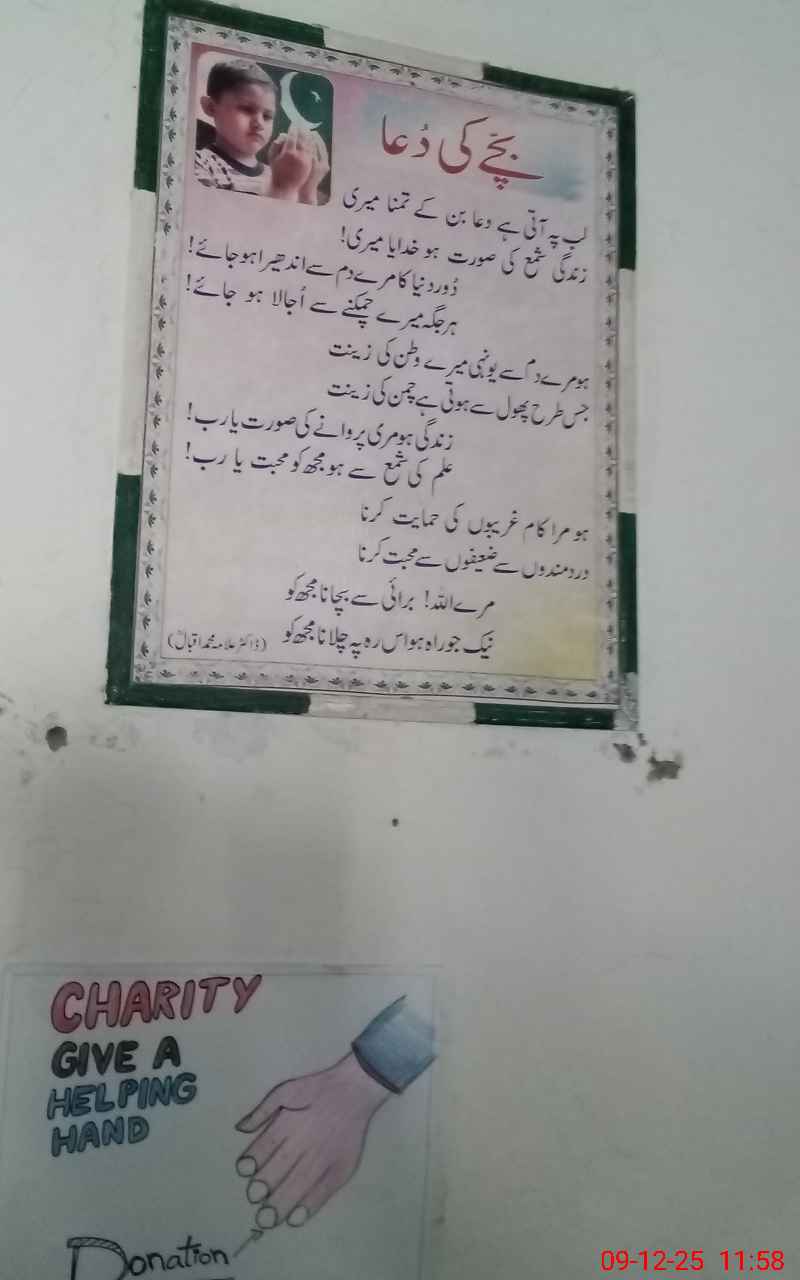 بچے کی دُعا
لب پہ آتی ہے دعا بن کے تمنا میری
زندگی شمع کی صورت ہو خدایا میری!
دُور دنیا کا مرے دم سے اندھیرا ہو جائے!
ہر جگہ میرے چمکنے سے اُجالا ہو جائے!
ہو مرے دم سے یونہی میرے وطن کی زینت
جس طرح پھول سے ہوتی ہے چمن کی زینت
زندگی ہو مری پروانے کی صورت یا رب!
علم کی شمع سے ہو مجھ کو محبت یا رب!
ہو مرا کام غریبوں کی حمایت کرنا
دردمندوں سے ضعیفوں سے محبت کرنا
مرے اللہ! برائی سے بچانا مجھ کو
نیک جو راہ ہو اس رہ پہ چلانا مجھ کو
(ڈاکٹر علامہ محمد اقبالؒ)
CHARITY
GIVE A
HELPING
HAND
Donation
09-12-25 11:58